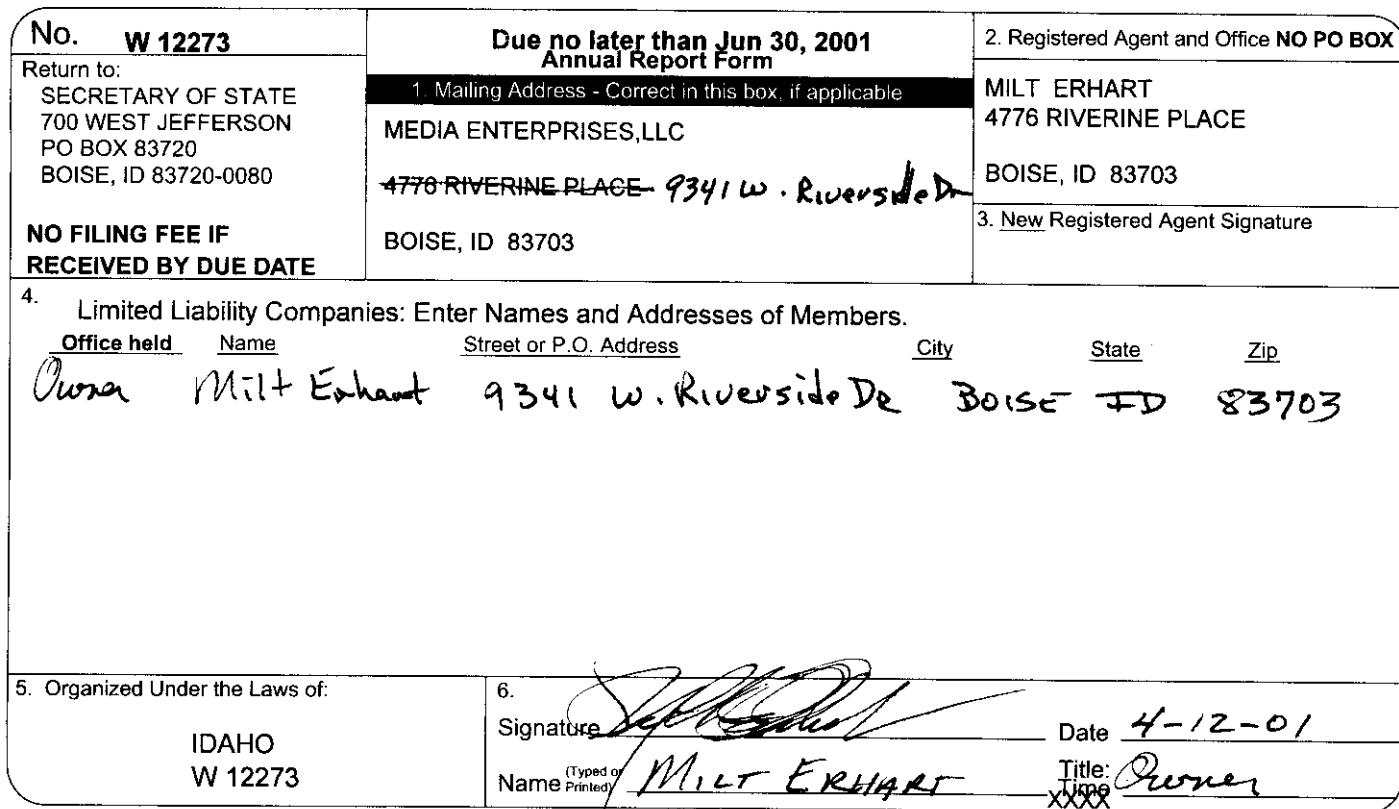 No. W 12273
Return to:
SECRETARY OF STATE
700 WEST JEFFERSON
PO BOX 83720
BOISE, ID 83720-0080
NO FILING FEE IF
RECEIVED BY DUE DATE
Due no later than Jun 30, 2001
Annual Report Form
1. Mailing Address - Correct in this box, if applicable
MEDIA ENTERPRISES,LLC
4776 RIVERINE PLACE 9341 W. Riverside Dr
BOISE, ID 83703
2. Registered Agent and Office NO PO BOX
MILT ERHART
4776 RIVERINE PLACE
BOISE, ID 83703
3. New Registered Agent Signature
4. Limited Liability Companies: Enter Names and Addresses of Members.
Office held Name Street or P.O. Address City State Zip
Owner Milt Erhart 9341 W. Riverside DR BOISE ID 83703
5. Organized Under the Laws of:
IDAHO
W 12273
6.
Signature Date 4-12-01
Name (Typed or Printed) MILT ERHART Title: Owner
Time
XXXX